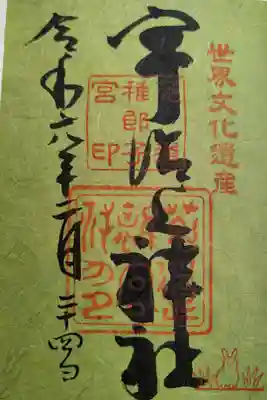 世界文化遺産
宇治上神社
稚郎子
宮印
令和六年二月二十四日